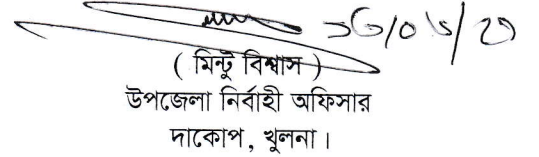 ( মিন্টু বিশ্বাস )
উপজেলা নির্বাহী অফিসার
দাকোপ, খুলনা।